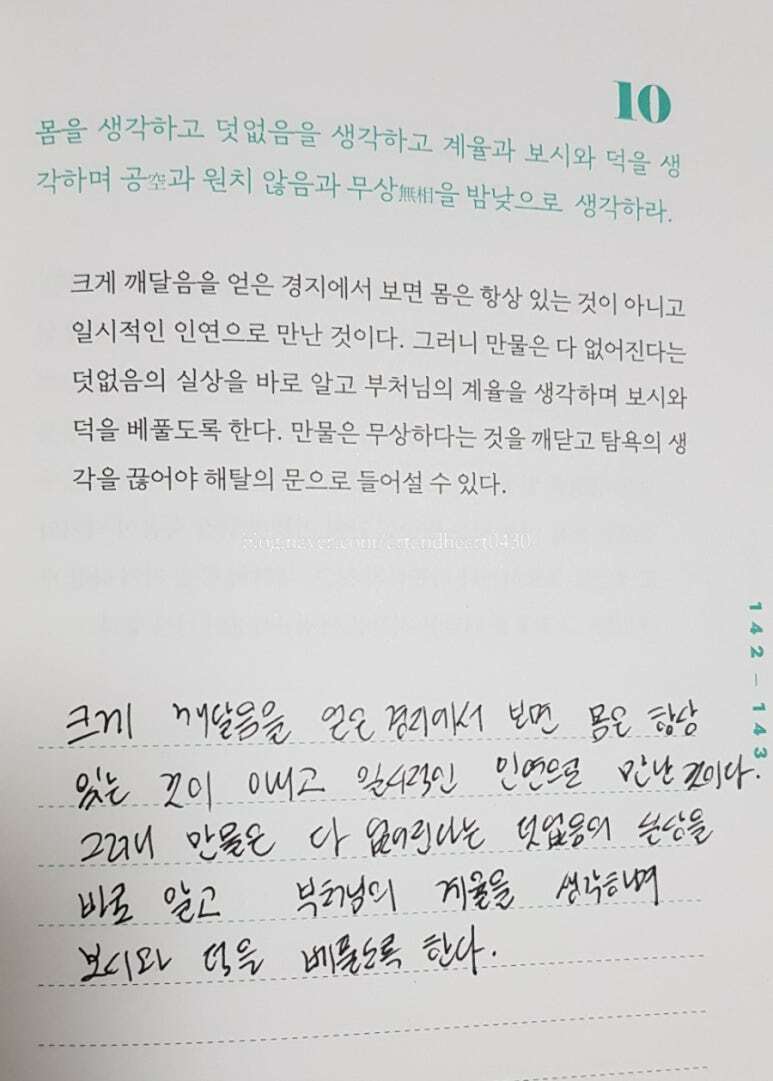 10
몸을 생각하고 덧없음을 생각하고 계율과 보시와 덕을 생
각하며 공空과 원치 않음과 무상無相을 밤낮으로 생각하라.
크게 깨달음을 얻은 경지에서 보면 몸은 항상 있는 것이 아니고
일시적인 인연으로 만난 것이다. 그러니 만물은 다 없어진다는
덧없음의 실상을 바로 알고 부처님의 계율을 생각하며 보시와
덕을 베풀도록 한다. 만물은 무상하다는 것을 깨닫고 탐욕의 생
각을 끊어야 해탈의 문으로 들어설 수 있다.
blog.naver.com/artandheart0430
142 – 143
크게 깨달음을 얻은 경지에서 보면 몸은 항상
있는 것이 아니고 일시적인 인연으로 만난 것이다.
그러니 만물은 다 없어진다는 덧없음의 실상을
바로 알고 부처님의 계율을 생각하며
보시와 덕을 베풀도록 한다.